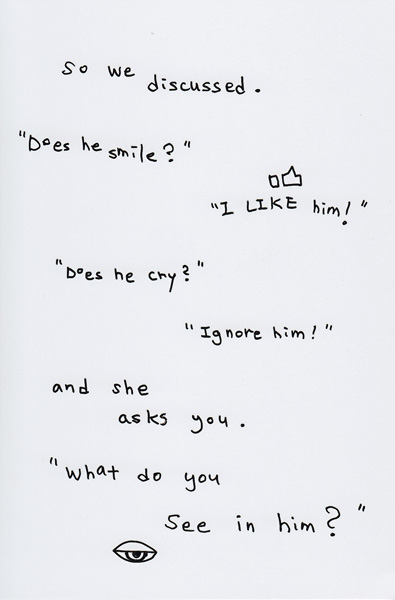 So we
discussed.
"Does he smile?"
"I LIKE him!"
"Does he cry?"
"Ignore him!"
and she
asks you.
"What do you
See in him?"